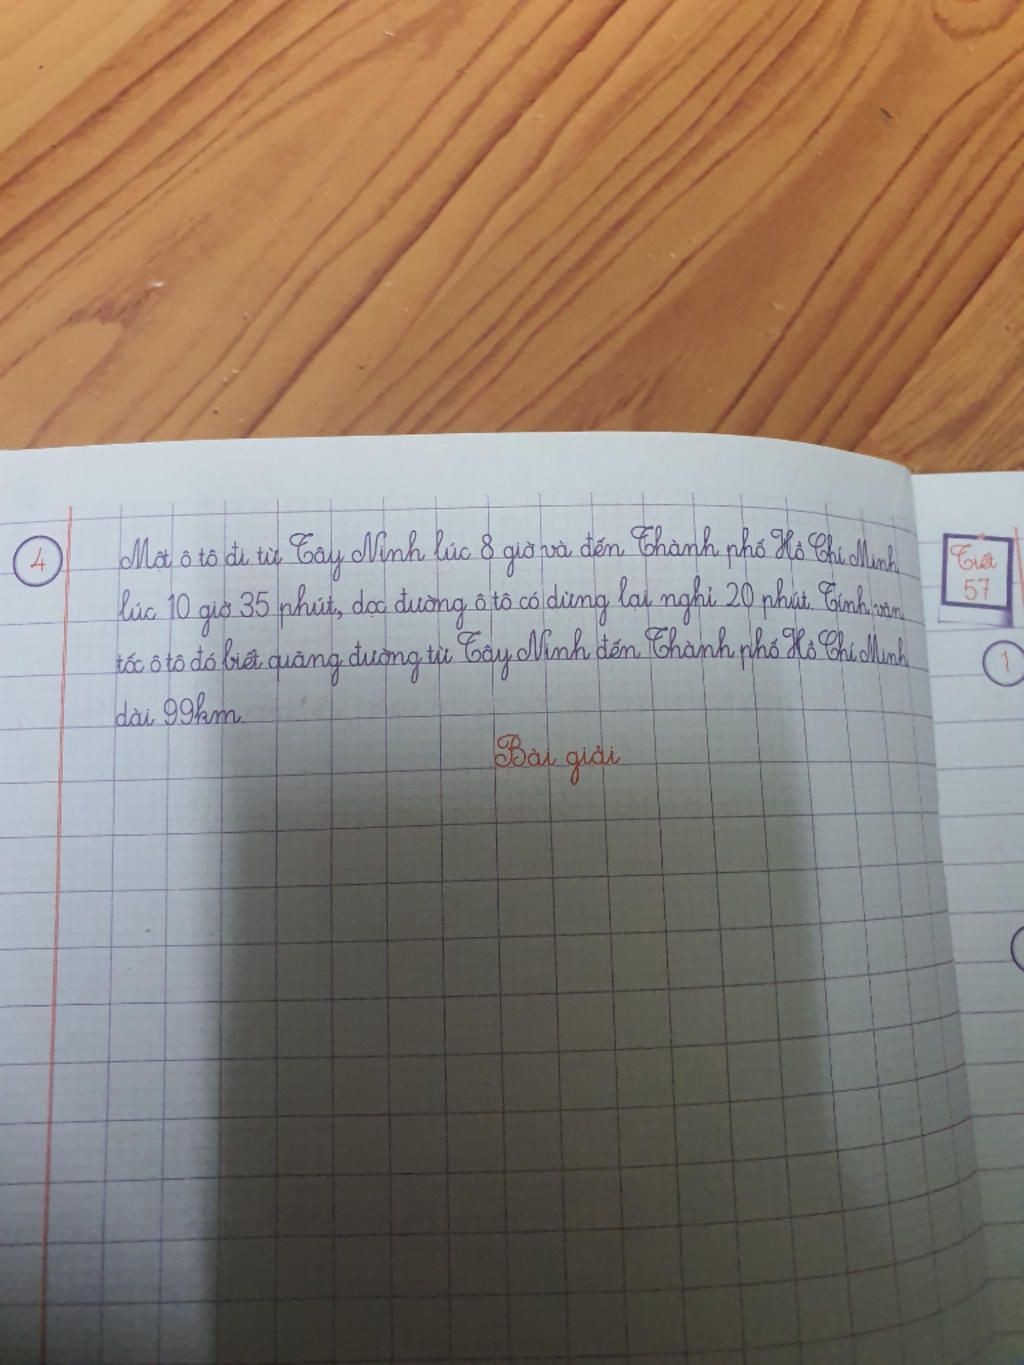 4
Một ô tô đi từ Tây Ninh lúc 8 giờ và đến Thành phố Hồ Chí Minh
lúc 10 giờ 35 phút, dọc đường ô tô có dừng lại nghỉ 20 phút. Tính vận
tốc ô tô đó biết quãng đường từ Tây Ninh đến Thành phố Hồ Chí Minh
dài 99km.
Bài giải
Tiết
57
1